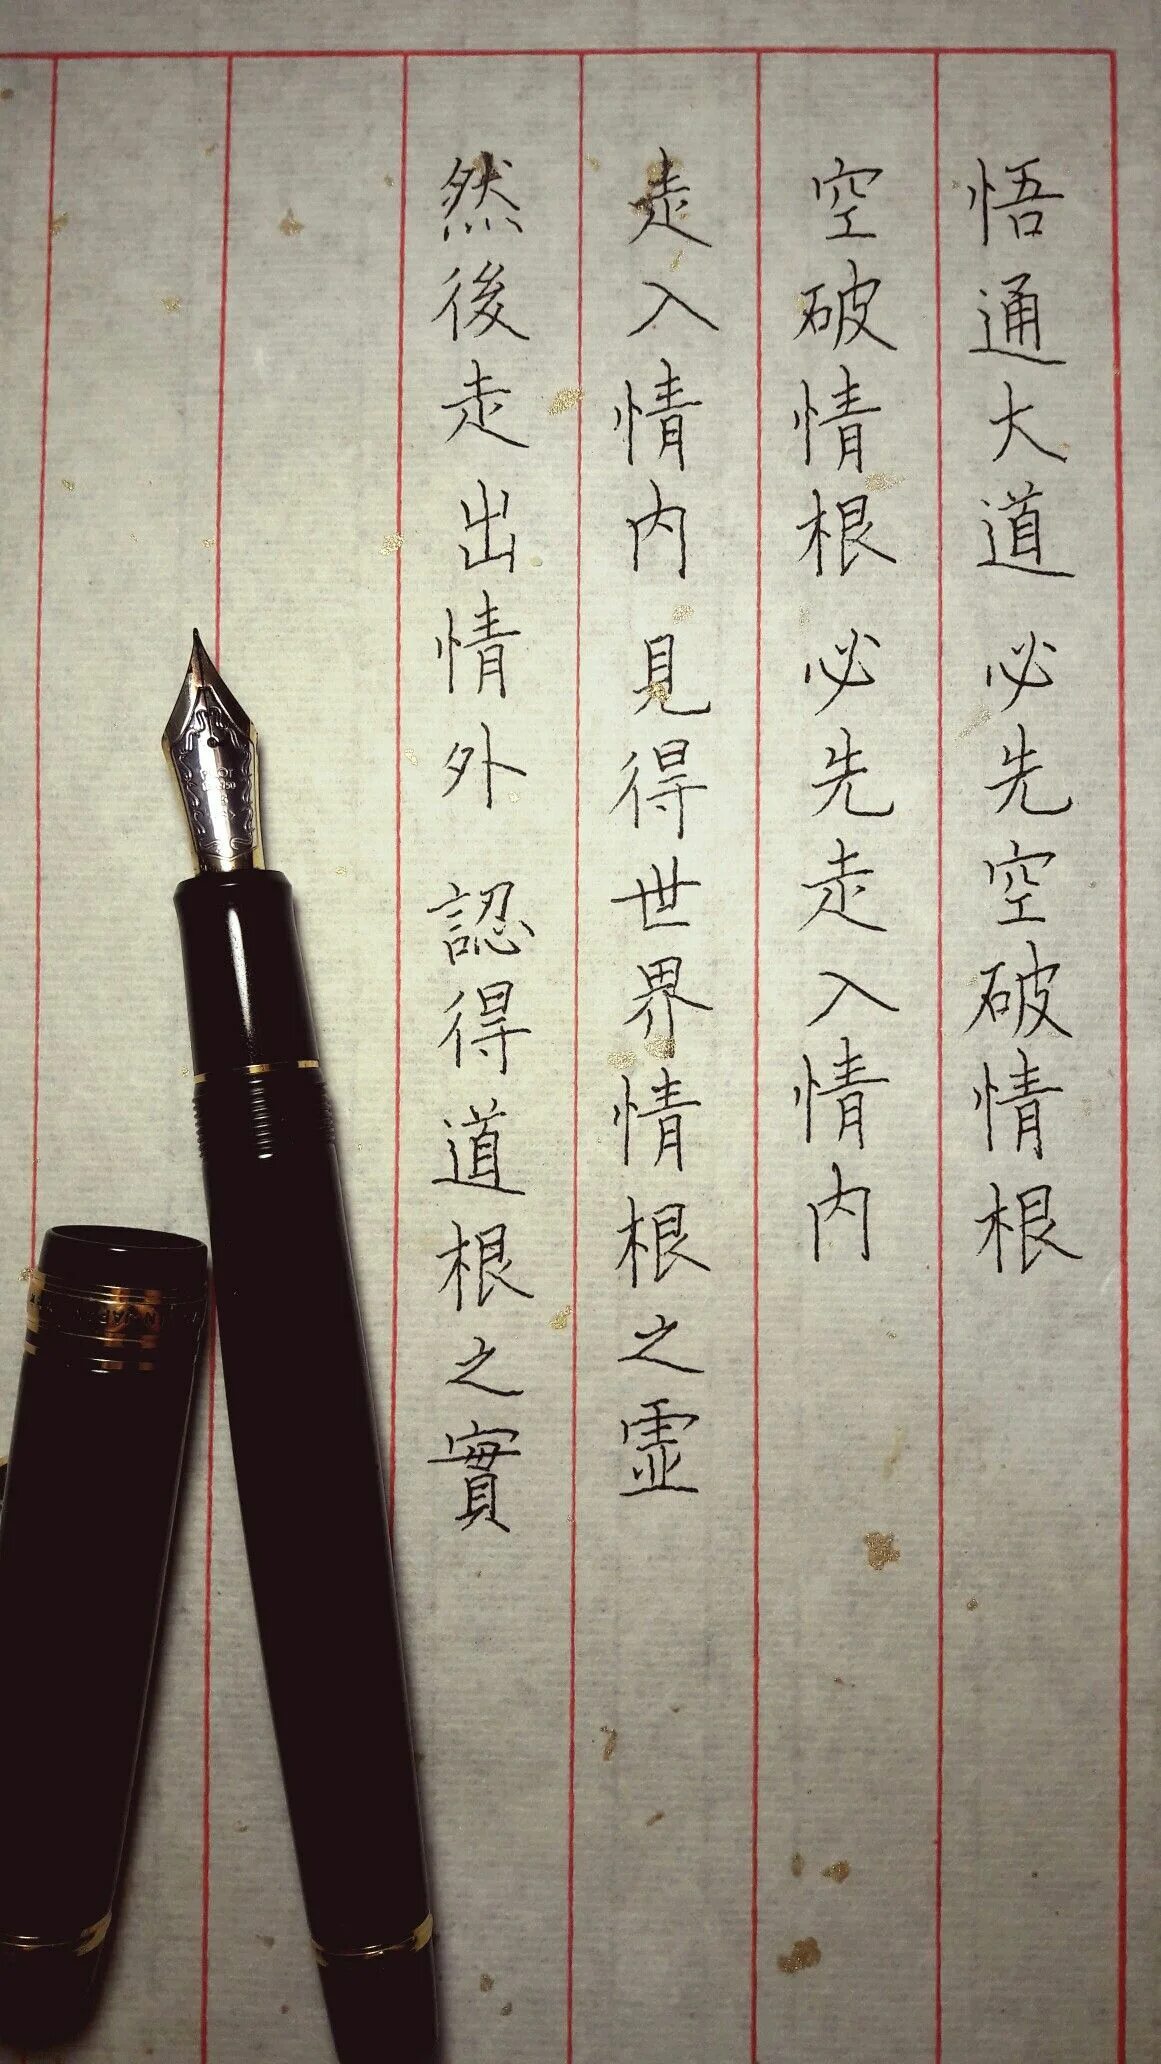 悟通大道 必先空破情根
空破情根 必先走入情内
走入情内 見得世界情根之虛
然後走出情外 認得道根之實